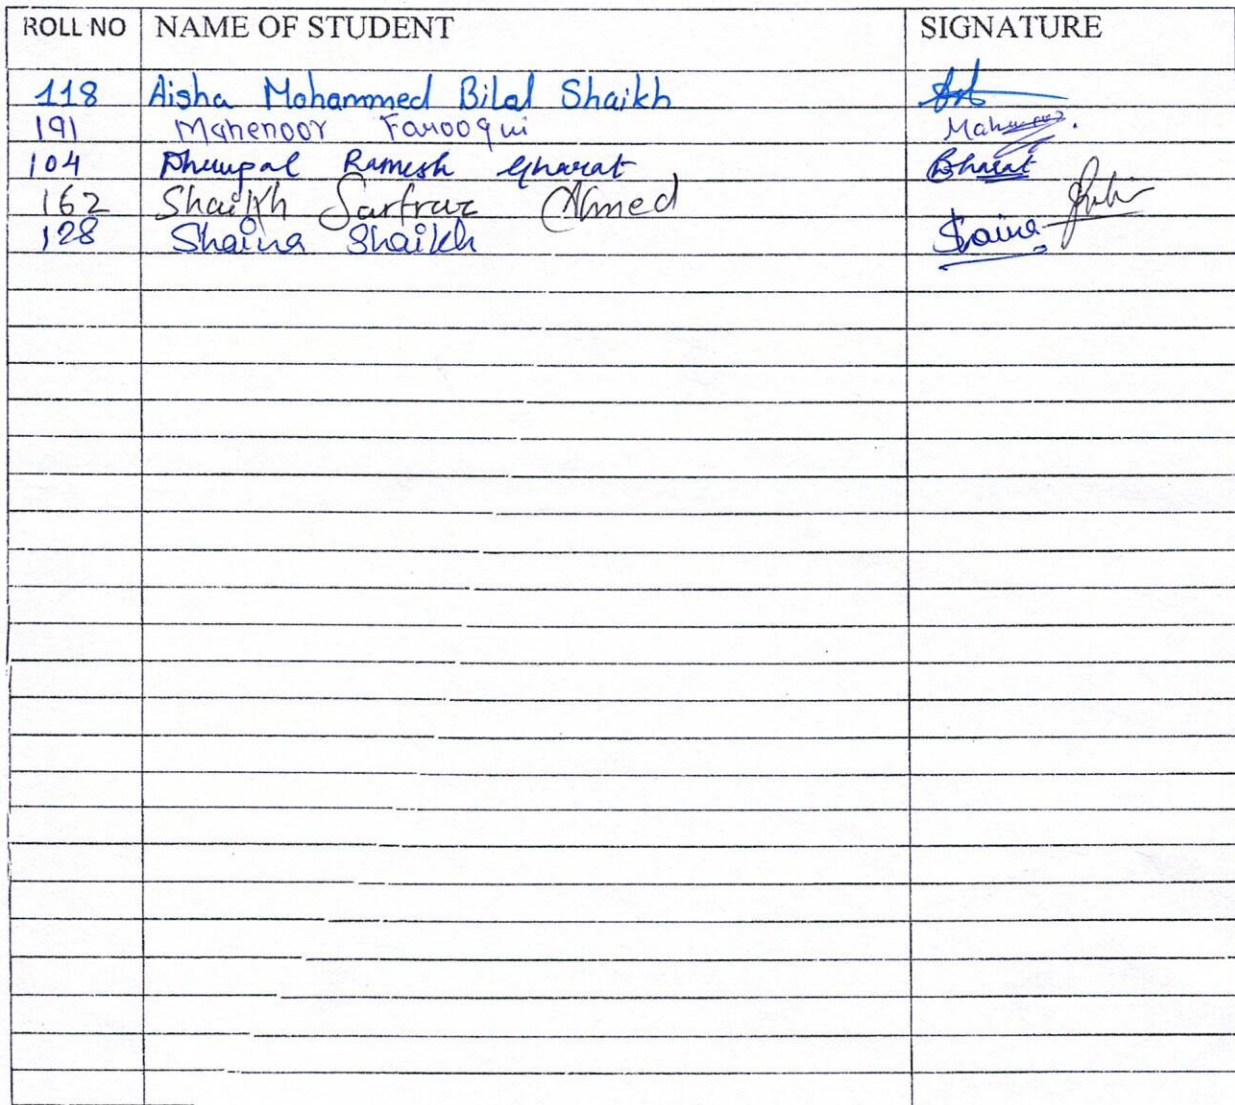 ROLL NO NAME OF STUDENT SIGNATURE
118 Aisha Mohammed Bilal Shaikh
191 Mahenoor Farooqui
104 Ramesh Gharat
162 Shaikh Sarfraz Ahmed
128 Shaina Shaikh Shaina